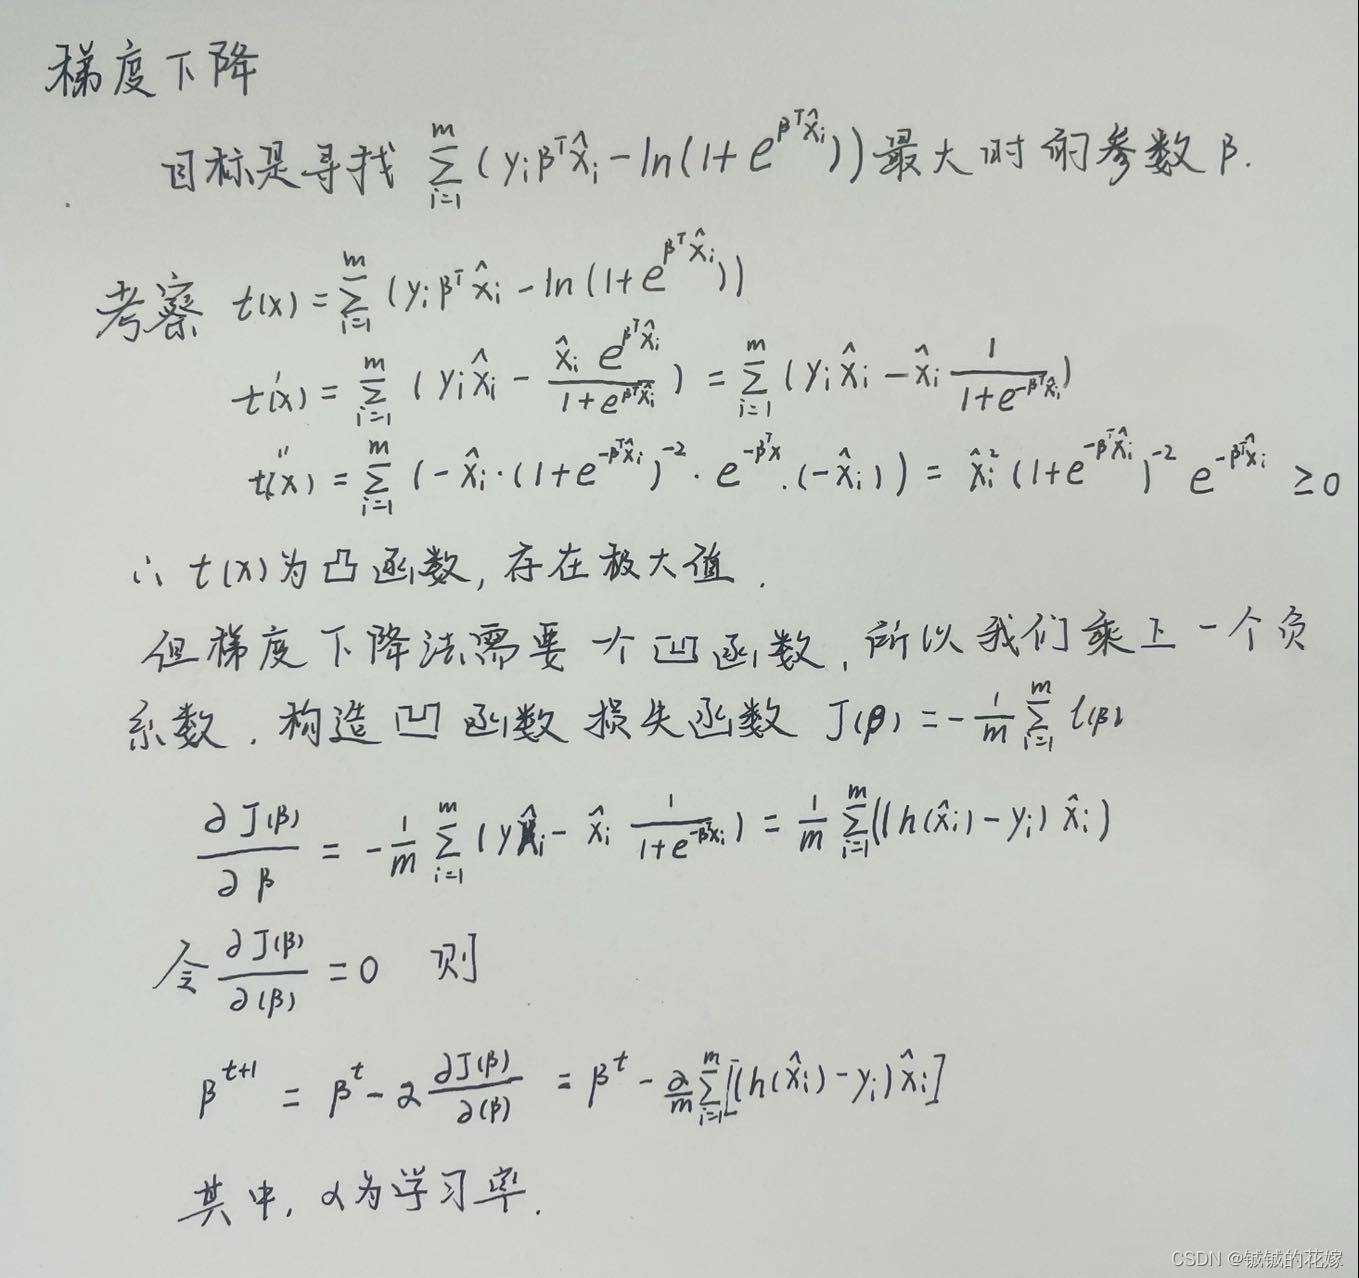 梯度下降
目标是寻找 $\sum_{i=1}^{m}(y_i\beta^T\hat{x}_i-\ln(1+e^{\beta^T\hat{x}_i}))$ 最大时的参数 β.
考察 $t(x)=\sum_{i=1}^{m}(y_i\beta^T\hat{x}_i-\ln(1+e^{\beta^T\hat{x}_i}))$
$t'(x)=\sum_{i=1}^{m}(y_i\hat{x}_i-\frac{\hat{x}_i e^{\beta^T\hat{x}_i}}{1+e^{\beta^T\hat{x}_i}})=\sum_{i=1}^{m}(y_i\hat{x}_i-\hat{x}_i\frac{1}{1+e^{-\beta^T\hat{x}_i}})$
$t''(x)=\sum_{i=1}^{m}(-\hat{x}_i\cdot(1+e^{-\beta^T\hat{x}_i})^{-2}\cdot e^{-\beta^T x}\cdot(-\hat{x}_i))=\hat{x}_i^2(1+e^{-\beta^T\hat{x}_i})^{-2}e^{-\beta^T\hat{x}_i}\geq 0$
∴ t(x)为凸函数,存在极大值.
但梯度下降法需要一个凹函数,所以我们乘上一个负
系数.构造凹函数损失函数 $J(\beta)=-\frac{1}{m}\sum_{i=1}^{m}l(\beta)$
$\frac{\partial J(\beta)}{\partial\beta}=-\frac{1}{m}\sum_{i=1}^{m}(y\hat{x}_i-\hat{x}_i\frac{1}{1+e^{-\beta^T\hat{x}_i}})=\frac{1}{m}\sum_{i=1}^{m}((h(\hat{x}_i)-y_i)\hat{x}_i)$
令 $\frac{\partial J(\beta)}{\partial(\beta)}=0$ 则
$\beta^{t+1}=\beta^t-\alpha\frac{\partial J(\beta)}{\partial(\beta)}=\beta^t-\frac{\alpha}{m}\sum_{i=1}^{m}[(h(\hat{x}_i)-y_i)\hat{x}_i]$
其中,α为学习率.
CSDN @铖铖的花嫁